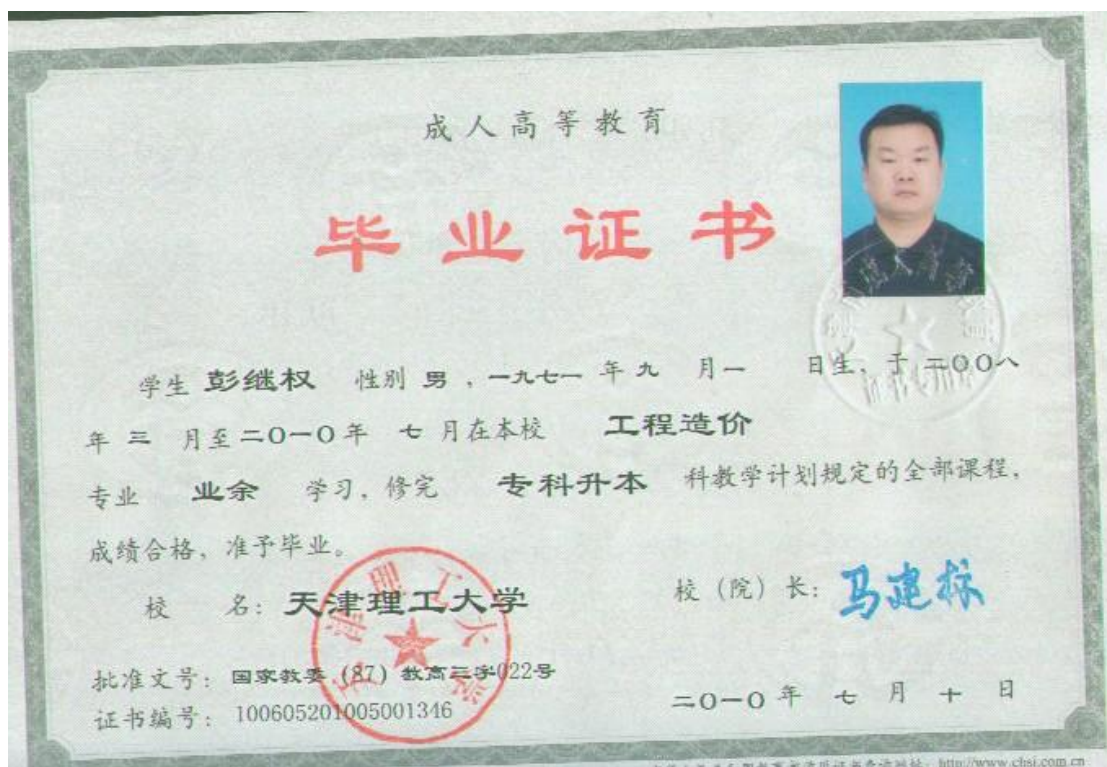 成人高等教育
毕业证书
学生 彭继权 性别 男，一九七一 年 九 月 一 日生，于 二〇〇八
年 三 月至 二〇一〇 年 七 月在本校 工程造价
专业 业余 学习，修完 专科升本 科教学计划规定的全部课程，
成绩合格，准予毕业。
校 名：天津理工大学
校（院）长：马建标
批准文号：国家教委（87）教高三字022号
证书编号：100605201005001346
二〇一〇 年 七 月 十 日
天津理工大学
http://www.chsi.com.cn